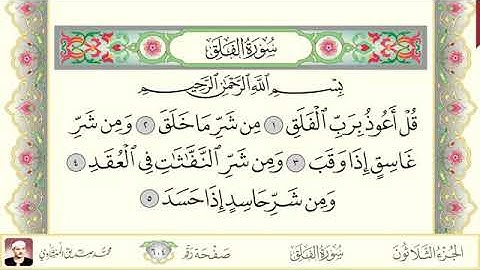 سُورَةُ الفَلَقِ
بِسْمِ ٱللَّهِ ٱلرَّحْمَٰنِ ٱلرَّحِيمِ
قُلْ أَعُوذُ بِرَبِّ ٱلْفَلَقِ ١ مِن شَرِّ مَا خَلَقَ ٢ وَمِن شَرِّ
غَاسِقٍ إِذَا وَقَبَ ٣ وَمِن شَرِّ ٱلنَّفَّٰثَٰتِ فِى ٱلْعُقَدِ ٤
وَمِن شَرِّ حَاسِدٍ إِذَا حَسَدَ ٥
الجُزْءُ الثَّلَاثُونَ سُورَةُ الفَلَقِ صَفْحَة رَقَم ٦٠٤ محمد صديق المنشاوي